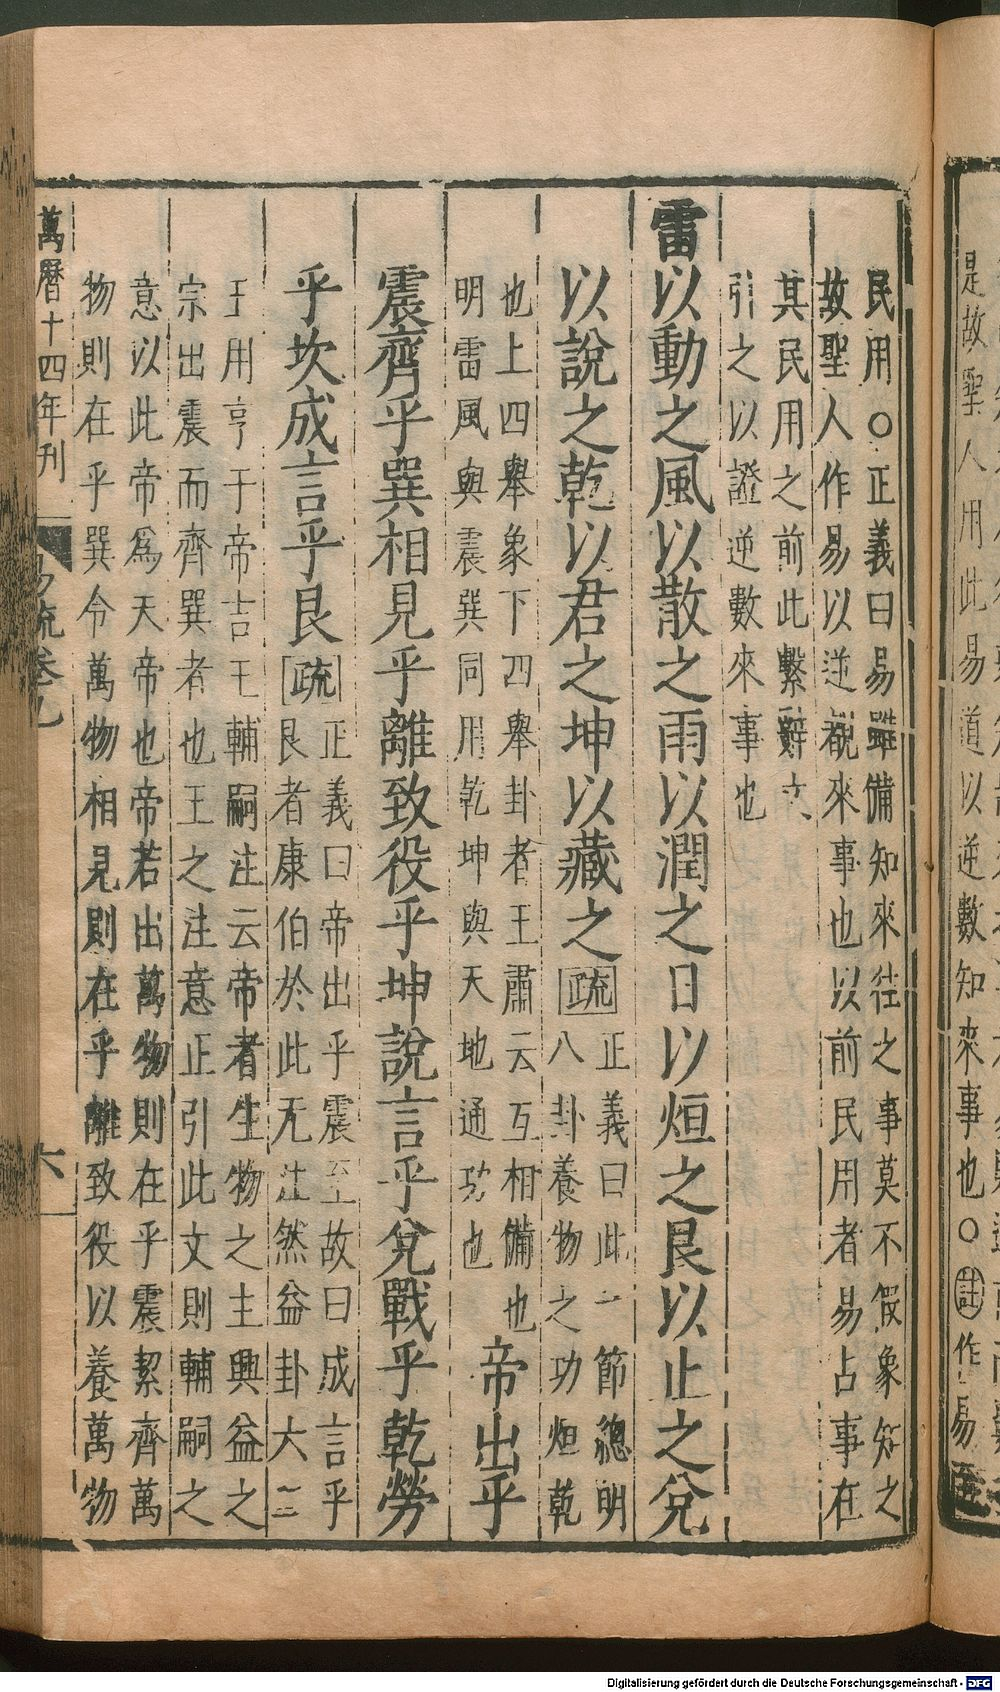 民用○正義曰易雖備知來往之事莫不假象知之
故聖人作易以逆覩來事也以前民用者易占事在
其民用之前此繫辭文
引之以證逆數來事也
雷以動之風以散之雨以潤之日以烜之艮以止之兌
以說之乾以君之坤以藏之疏
正義曰此一節總明
八卦養物之功烜乾
也上四舉象下四舉卦者王肅云互相備也
明雷風與震巽同用乾坤與天地通功也
帝出乎
震齊乎巽相見乎離致役乎坤說言乎兌戰乎乾勞
乎坎成言乎艮疏
正義曰帝出乎震至故曰成言乎
艮者康伯於此无注然益卦六二
王用亨于帝吉王輔嗣注云帝者生物之主興益之
宗出震而齊巽者也王之注意正引此文則輔嗣之
意以此帝爲天帝也帝若出萬物則在乎震絜齊萬
物則在乎巽令萬物相見則在乎離致役以養萬物
萬曆十四年刊
易疏卷九
六
是故聖人用此易道以逆數知來事也○註作易
Digitalisierung gefördert durch die Deutsche Forschungsgemeinschaft - DFG